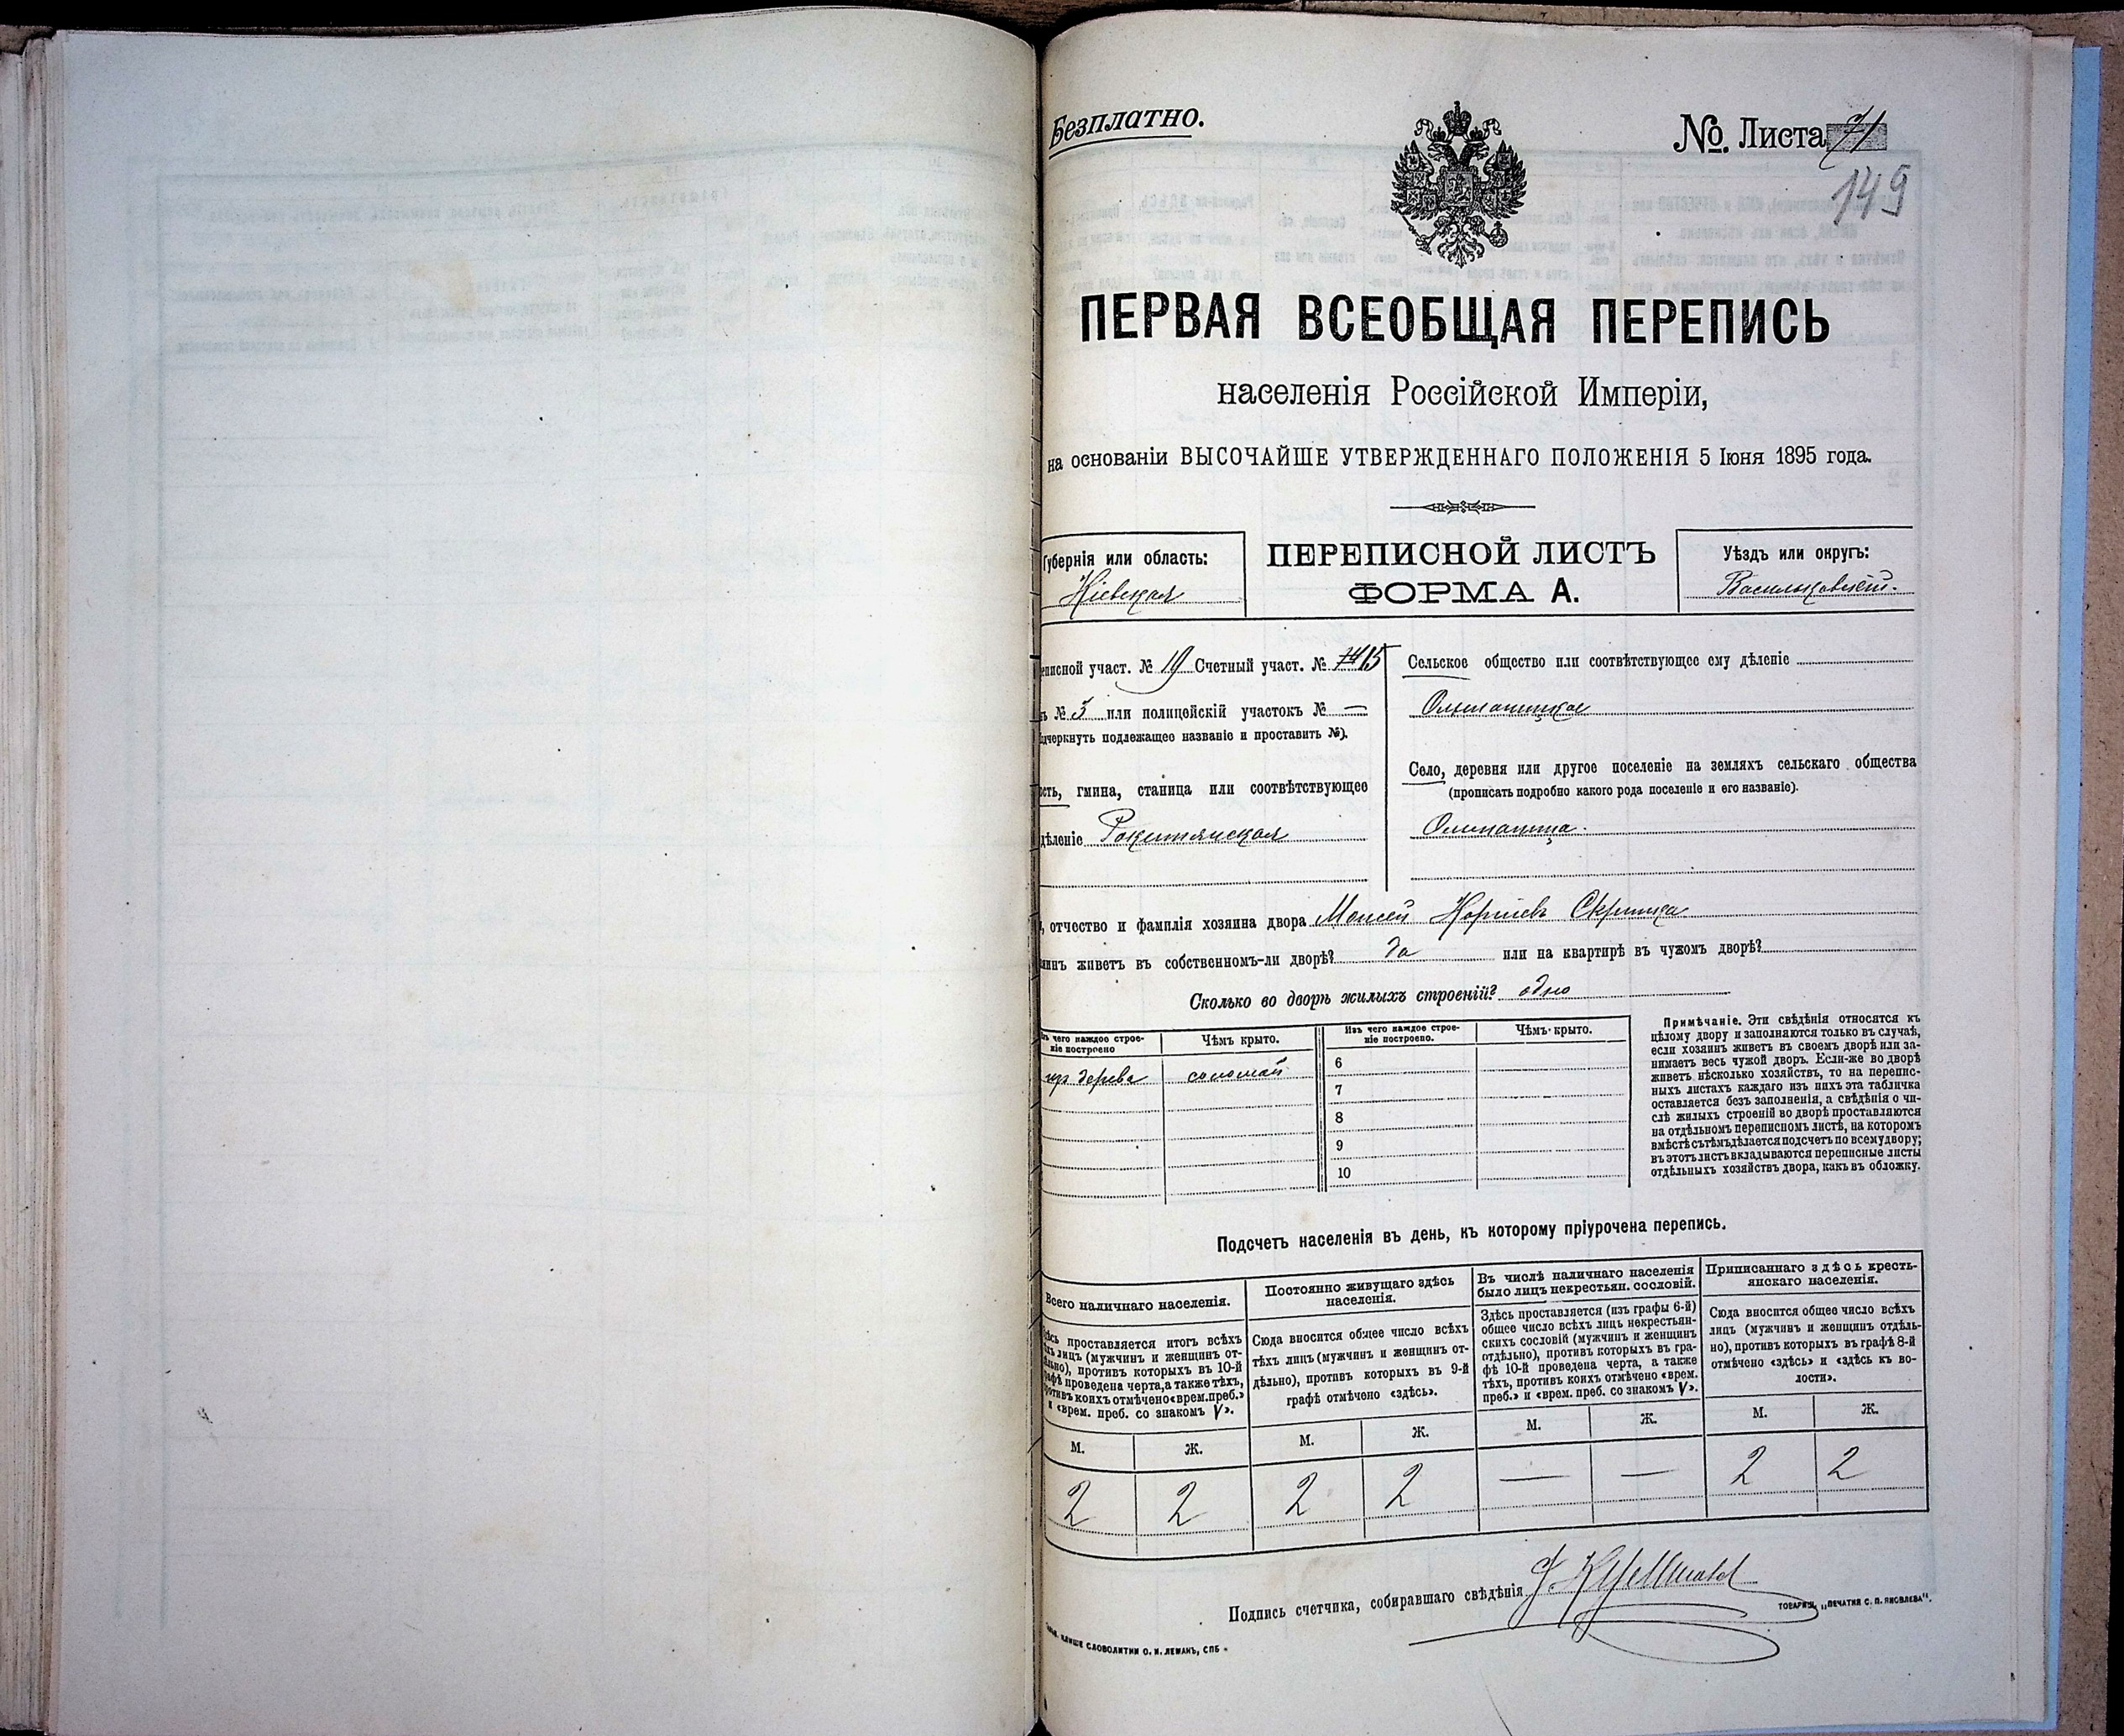 Безплатно.
№ Листа 71
149
ПЕРВАЯ ВСЕОБЩАЯ ПЕРЕПИСЬ
населенія Россійской Имперіи,
на основаніи ВЫСОЧАЙШЕ УТВЕРЖДЕННАГО ПОЛОЖЕНІЯ 5 Іюня 1895 года.
Губернія или область:
Кіевская
ПЕРЕПИСНОЙ ЛИСТЪ
ФОРМА А.
Уѣздъ или округъ:
Васильковскій.
еписной участ. № 19 Счетный участ. № 15
ъ № 3 или полицейскій участокъ № —
дчеркнуть подлежащее названіе и проставить №).
ость, гмина, станица или соотвѣтствующее
дѣленіе Рокитянская
Сельское общество или соотвѣтствующее ему дѣленіе
Ольшаницкое
Село, деревня или другое поселеніе на земляхъ сельскаго общества
(прописать подробно какого рода поселеніе и его названіе).
Ольшаница.
, отчество и фамилія хозяина двора Моисей Корніевъ Скрипка
инъ живетъ въ собственномъ-ли дворѣ? да или на квартирѣ въ чужомъ дворѣ?
Сколько во дворѣ жилыхъ строеній? одно
ъ чего каждое строе-
ніе построено
Чѣмъ крыто.
Изъ чего каждое строе-
ніе построено.
Чѣмъ крыто.
дерева соломой
6
7
8
9
10
Примѣчаніе. Эти свѣдѣнія относятся къ
цѣлому двору и заполняются только въ случаѣ,
если хозяинъ живетъ въ своемъ дворѣ или за-
нимаетъ весь чужой дворъ. Если-же во дворѣ
живетъ нѣсколько хозяйствъ, то на перепис-
ныхъ листахъ каждаго изъ нихъ эта табличка
оставляется безъ заполненія, а свѣдѣнія о чи-
слѣ жилыхъ строеній во дворѣ проставляются
на отдѣльномъ переписномъ листѣ, на которомъ
вмѣстѣ съ тѣмъ дѣлается подсчетъ по всему двору;
въ этотъ листъ вкладываются переписные листы
отдѣльныхъ хозяйствъ двора, какъ въ обложку.
Подсчетъ населенія въ день, къ которому пріурочена перепись.
Всего наличнаго населенія.
дѣсь проставляется итогъ всѣхъ
хъ лицъ (мужчинъ и женщинъ от-
льно), противъ которыхъ въ 10-й
афѣ проведена черта, а также тѣхъ,
ротивъ коихъ отмѣчено «врем. преб.»
и «врем. преб. со знакомъ V».
Постоянно живущаго здѣсь
населенія.
Сюда вносится общее число всѣхъ
тѣхъ лицъ (мужчинъ и женщинъ от-
дѣльно), противъ которыхъ въ 9-й
графѣ отмѣчено «здѣсь».
Въ числѣ наличнаго населенія
было лицъ некрестьян. сословій.
Здѣсь проставляется (изъ графы 6-й)
общее число всѣхъ лицъ некрестьян-
скихъ сословій (мужчинъ и женщинъ
отдѣльно), противъ которыхъ въ гра-
фѣ 10-й проведена черта, а также
тѣхъ, противъ коихъ отмѣчено «врем.
преб.» и «врем. преб. со знакомъ V».
Приписаннаго здѣсь кресть-
янскаго населенія.
Сюда вносится общее число всѣхъ
лицъ (мужчинъ и женщинъ отдѣль-
но), противъ которыхъ въ графѣ 8-й
отмѣчено «здѣсь» и «здѣсь къ во-
лости».
М. Ж. М. Ж. М. Ж. М. Ж.
2 2 2 2 — — 2 2
Подпись счетчика, собиравшаго свѣдѣнія
ТОВАРИЩ. „ПЕЧАТНЯ С. П. ЯКОВЛЕВА".
КЛИШЕ СЛОВОЛИТНИ О. И. ЛЕМАНЪ, СПБ